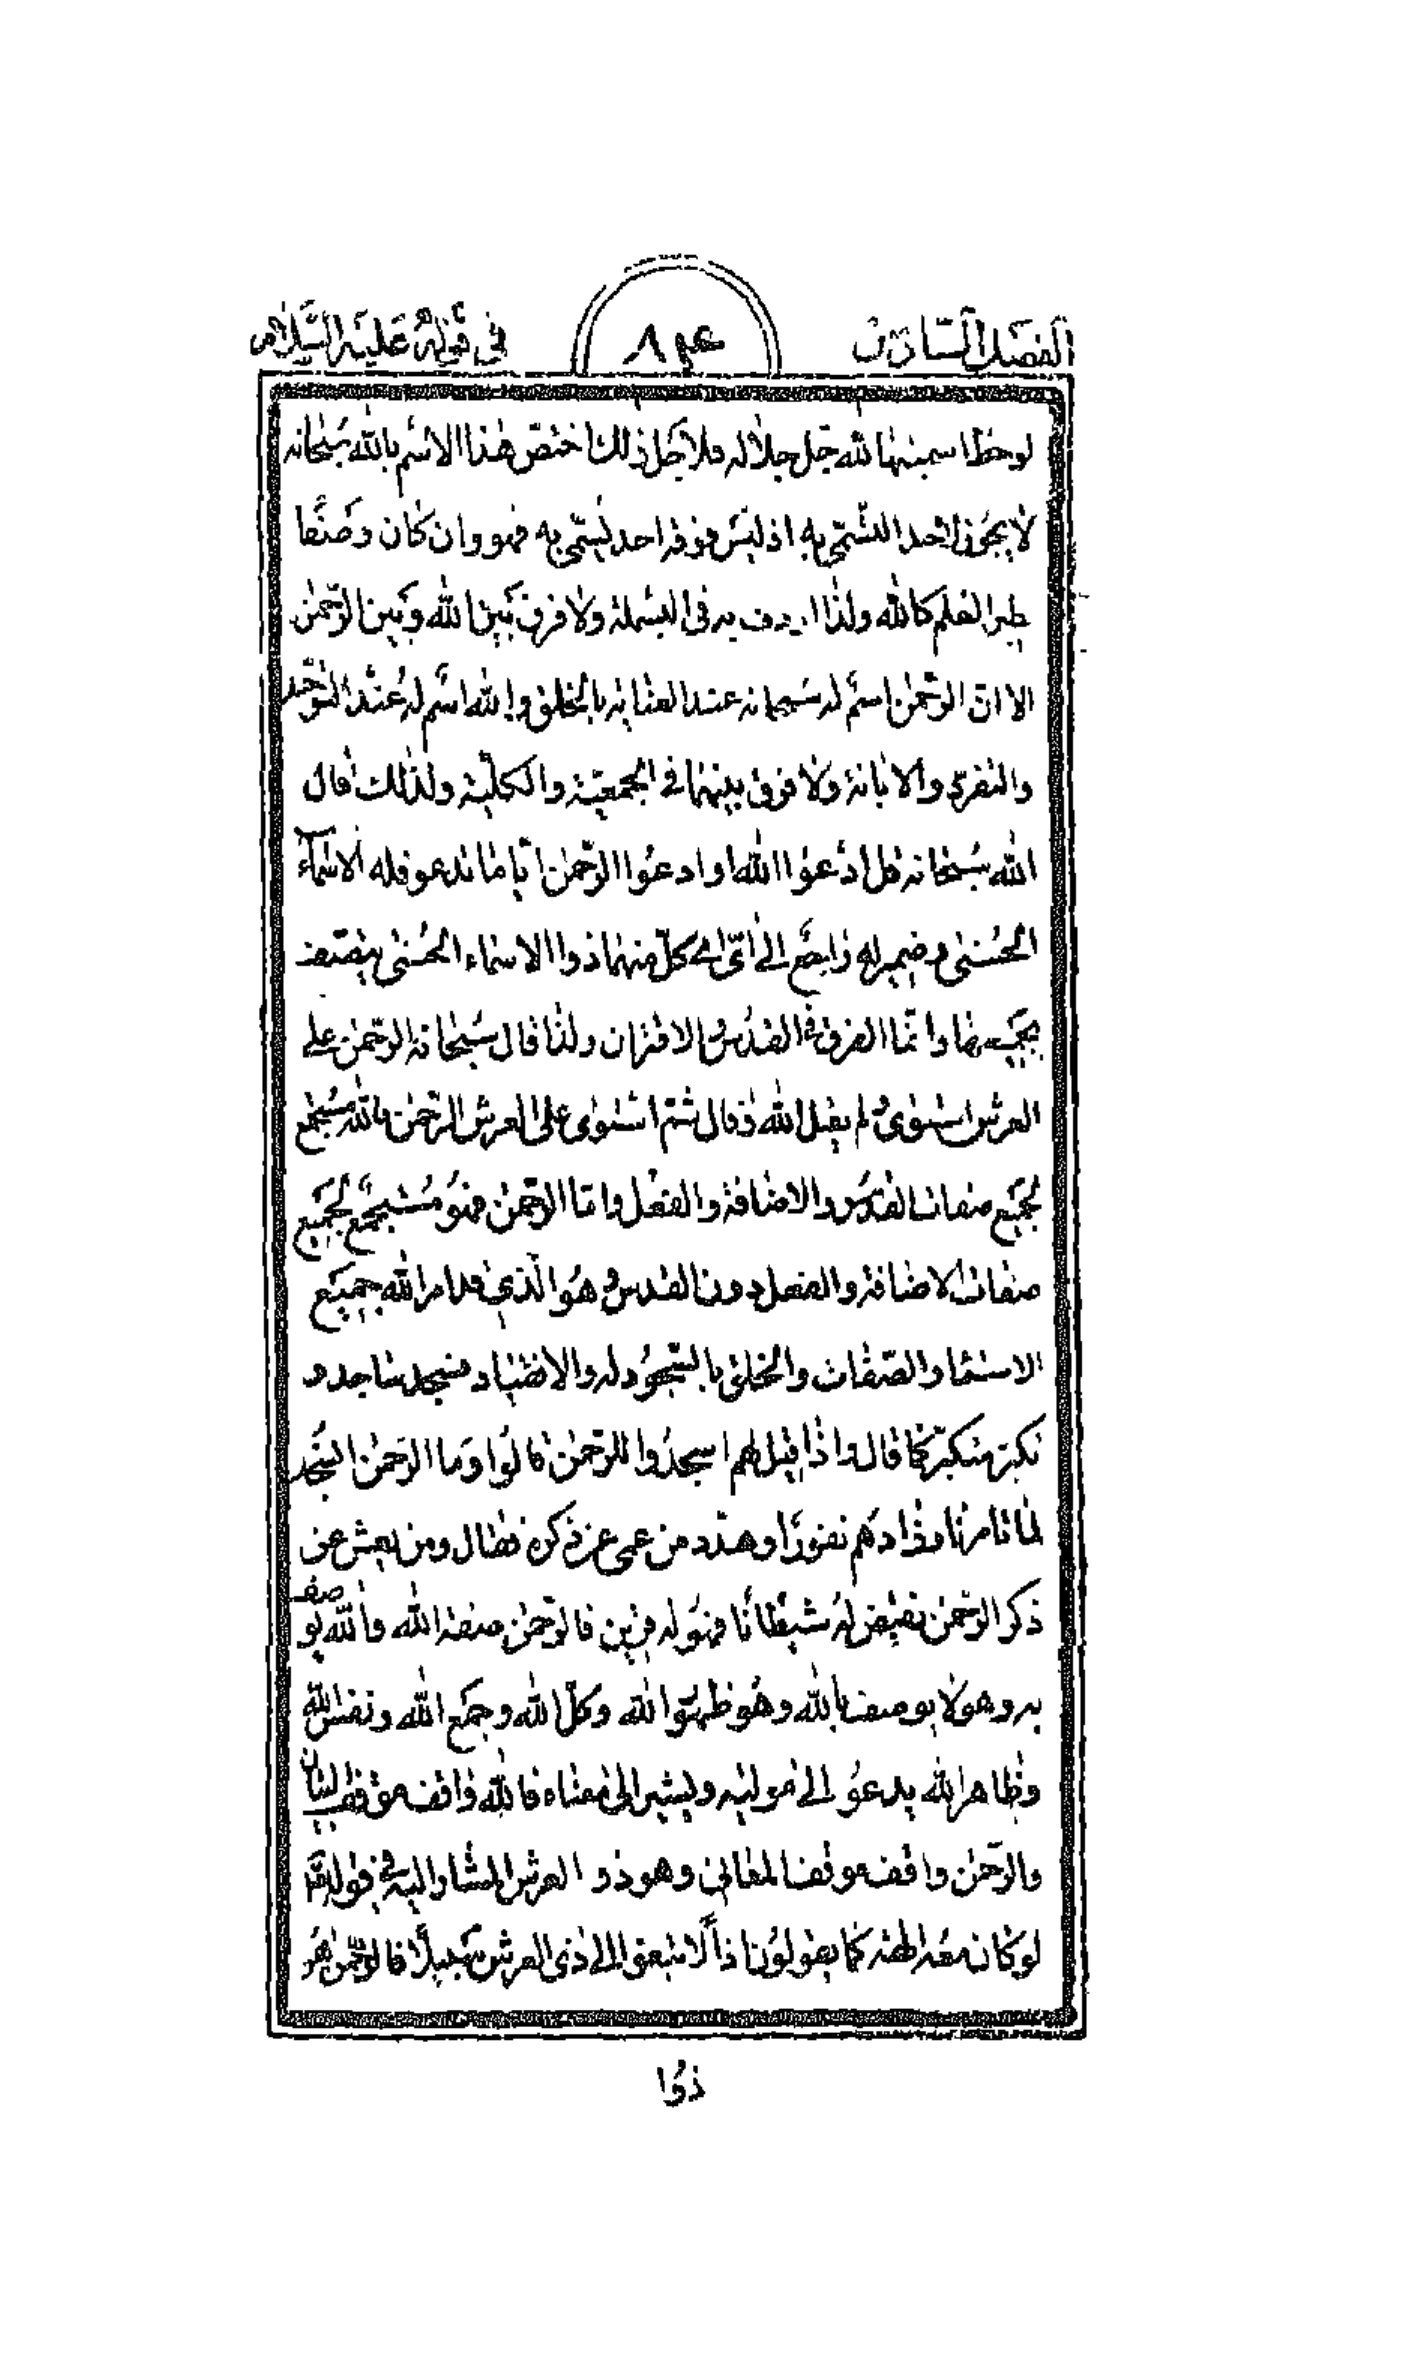 الفصل السادس
في قوله عليه السلام
لوحظ اسميتها لله جل جلاله فلاجل ذلك اختص هذا الاسم بالله سبحانه
لا يجوز لاحد التسمى به اذ ليس فوقه احد ليسمى به فهو وان كان وصفا
العلم كالله ولذا به في البسملة ولا فرق بين الله وبين الرحمن
الا ان الرحمن اسم له سبحانه عند العناية بالخلق والله اسم له عند التوحيد
والتفرد والابانة ولا فرق بينهما في الجمعية والكلية ولذلك قال
الله سبحانه قل ادعوا الله او ادعوا الرحمن ايا ما تدعو فله الاسماء
الحسنى وضمير له راجع الى اي كل منهما ذو الاسماء الحسنى يتصف
بها وانما الفرق في القدس والاقتران ولذا قال سبحانه الرحمن على
العرش استوى ولم يقل الله وقال ثم استوى على العرش الرحمن فالله مستجمع
لجميع صفات القدس والاضافة والفعل واما الرحمن فهو مستجمع لجميع
صفات الاضافة والفعل دون القدس وهو الذي قد امر الله جميع
الاسماء والصفات والخلق بالسجود له والانقياد فسجد ساجد و
تكبر متكبر كما قال واذا قيل لهم اسجدوا للرحمن قالوا وما الرحمن انسجد
لما تامرنا وزادهم نفورا وهدد من عمى عن ذكره فقال ومن يعش عن
ذكر الرحمن نقيض له شيطانا فهو له قرين فالرحمن صفة الله والله يوصف
به وهو لا يوصف بالله وهو ظهور الله وكل الله وجمع الله ونفس الله
وظاهر الله يدعو الى موليه ويشير الى معناه فالله واقف موقف البيان
والرحمن واقف موقف المعاني وهو ذو العرش المشار اليه في قوله تعالى
لو كان معه الهة كما يقولون اذا لابتغوا الى ذي العرش سبيلا فالرحمن هو
ذوا